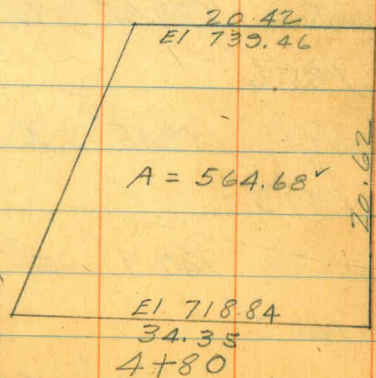 20.42
El 739.46
A = 564.68✓
20.62
El 718.84
34.35
4+80